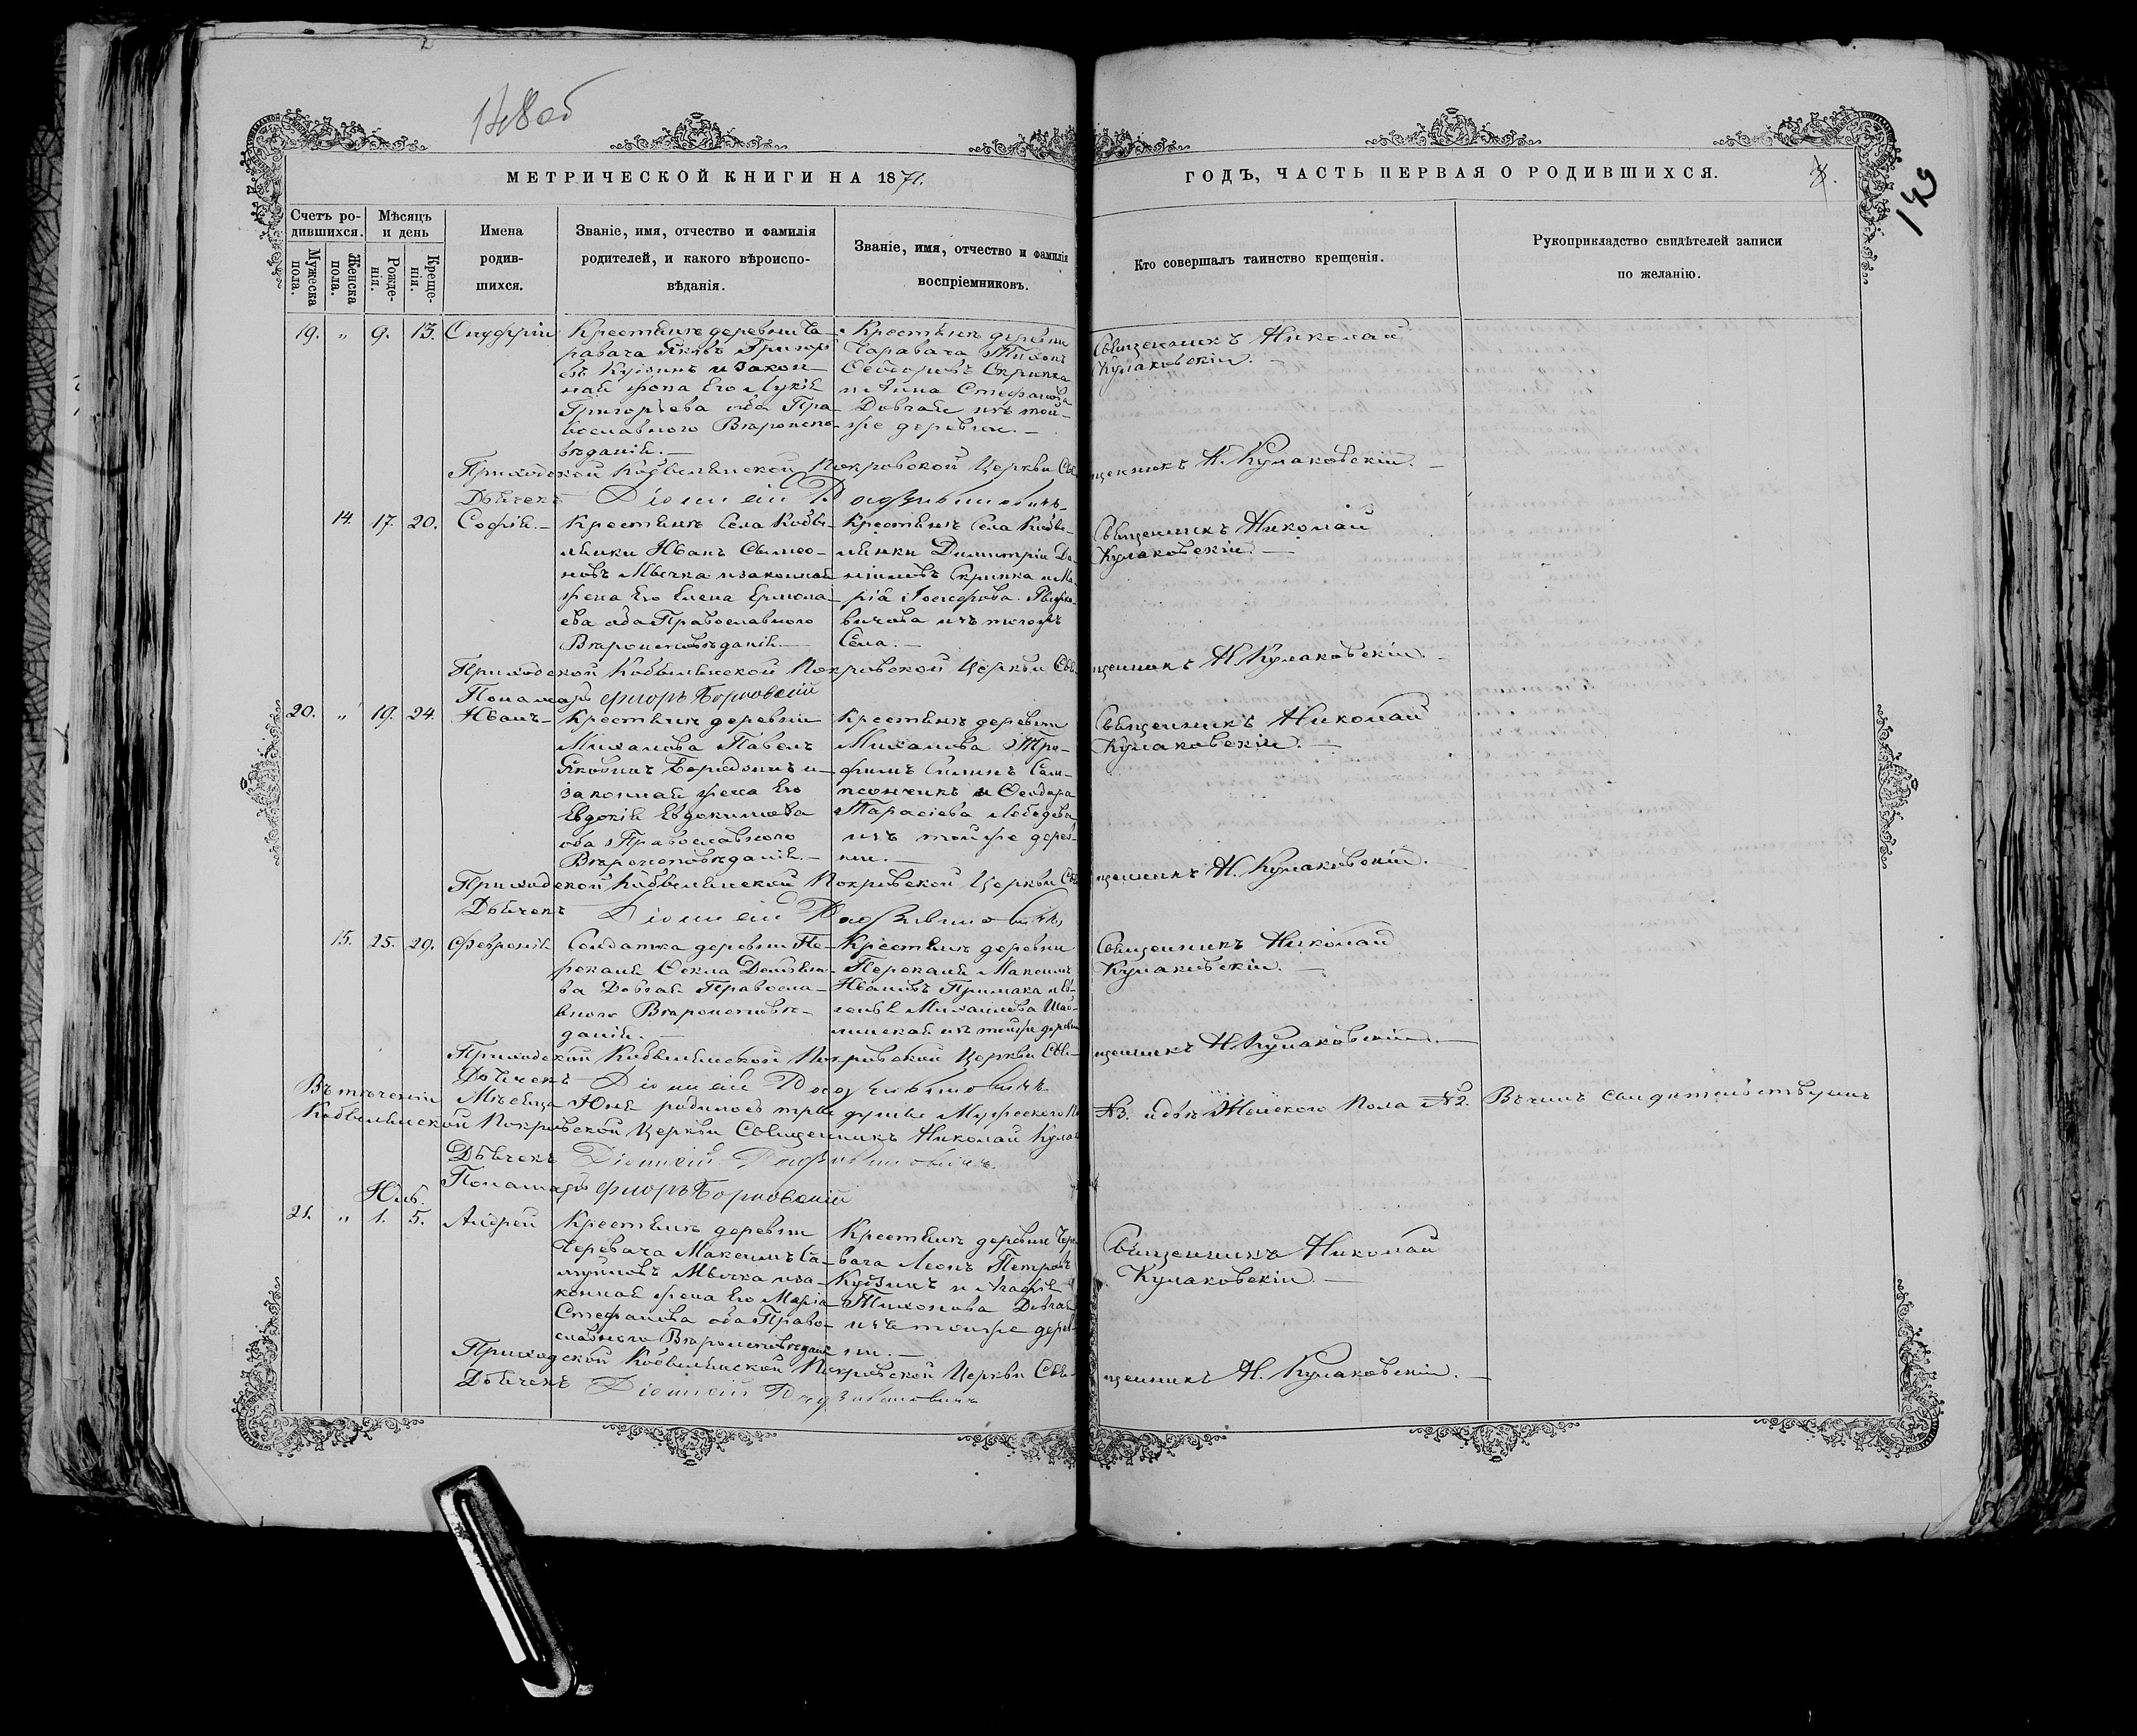 148об
МЕТРИЧЕСКОЙ КНИГИ НА 1871.
ГОДЪ, ЧАСТЬ ПЕРВАЯ О РОДИВШИХСЯ.
149
Счетъ ро-
дившихся.
Мужеска пола.
Женска пола.
Мѣсяцъ
и день
Рожде-
нія.
Креще-
нія.
Имена
родив-
шихся.
Званіе, имя, отчество и фамилія
родителей, и какого вѣроиспо-
вѣданія.
Званіе, имя, отчество и фамилія
воспріемниковъ.
Кто совершалъ таинство крещенія.
Рукоприкладство свидѣтелей записи
по желанію.
19. „ 9. 13. Онуфрій
Крестьянъ деревни Ча-
равача Яковъ Григорь
евъ и закон-
ная жена Его Лукія
Григорьева оба Пра-
вославного Вѣроиспо-
вѣданія.
Крестьянъ деревни
Чаравача Тихонъ
Ѳеодоровъ Скрипка
и Анна Стефанова
Довгая изъ той-
же деревни.
Священникъ Николай
Кулаковскій.
Приходской Кобылянской Покровской Церкви Священникъ Н. Кулаковскій.
Дьячекъ Діонисій
14. 17. 20. Софія.
Крестьянъ Села Кобы-
лянки Иванъ Симео-
новъ Мычка и законная
жена Его Елена Ермола-
ева оба Православного
Вѣроисповѣданія.
Крестьянъ Села Кобы-
лянки Димитрій Да-
ніиловъ Скрипка и Ма-
рія Іосифова
изъ тогожъ
Села.
Священникъ Николай
Кулаковскій.
Приходской Кобылянской Покровской Церкви Священникъ Н. Кулаковскій.
Понамарь Флоръ Борковскій
20. „ 19. 24. Иванъ
Крестьянъ деревни
Миханова Павелъ
Яковинъ и
законная жена Его
Евдокія Евдокимова
оба Православного
Вѣроисповѣданія.
Крестьянъ деревни
Миханова Тро-
фимъ
и Ѳеодора
Тарасіева Лебедева
изъ тойже дерев-
ни.
Священникъ Николай
Кулаковскій.
Приходской Кобылянской Покровской Церкви Священникъ Н. Кулаковскій.
Дьячекъ Діонисій
15. 25. 29. Февронія
Солдатка деревни Пе-
рекаля Ѳекла Демьяно-
ва Довгая Правосла-
вного Вѣроисповѣ-
данія.
Крестьянъ деревни
Перекаля Максимъ
Ивановъ Примака и
Михайлова
изъ тойже деревни
Священникъ Николай
Кулаковскій.
Приходской Кобылянской Покровской Церкви Священникъ Н. Кулаковскій.
Дьячекъ Діонисій
Въ теченіи Мѣсяца Юня родилось душъ Мужеского По № 3. Женского Пола № 2. Въ чемъ свидѣтельствуемъ
Кобылянской Покровской Церкви Священникъ Николай Кула
Дьячекъ Діонисій
Понамарь Флоръ Борковскій
Юль.
21. „ 1. 5. Андрей
Крестьянъ деревни
Черевача Максимъ Са-
муиловъ Мычка и за-
конная жена Его Марія
Стефанова оба Право-
славного Вѣроисповѣдані
Крестьянъ деревни Чере-
вача Леонъ Петровъ
и Агафія
Тихонова Довгая
изъ тойже дерев-
ни.
Священникъ Николай
Кулаковскій.
Приходской Кобылянской Покровской Церкви Священникъ Н. Кулаковскій.
Дьячекъ Діонисій